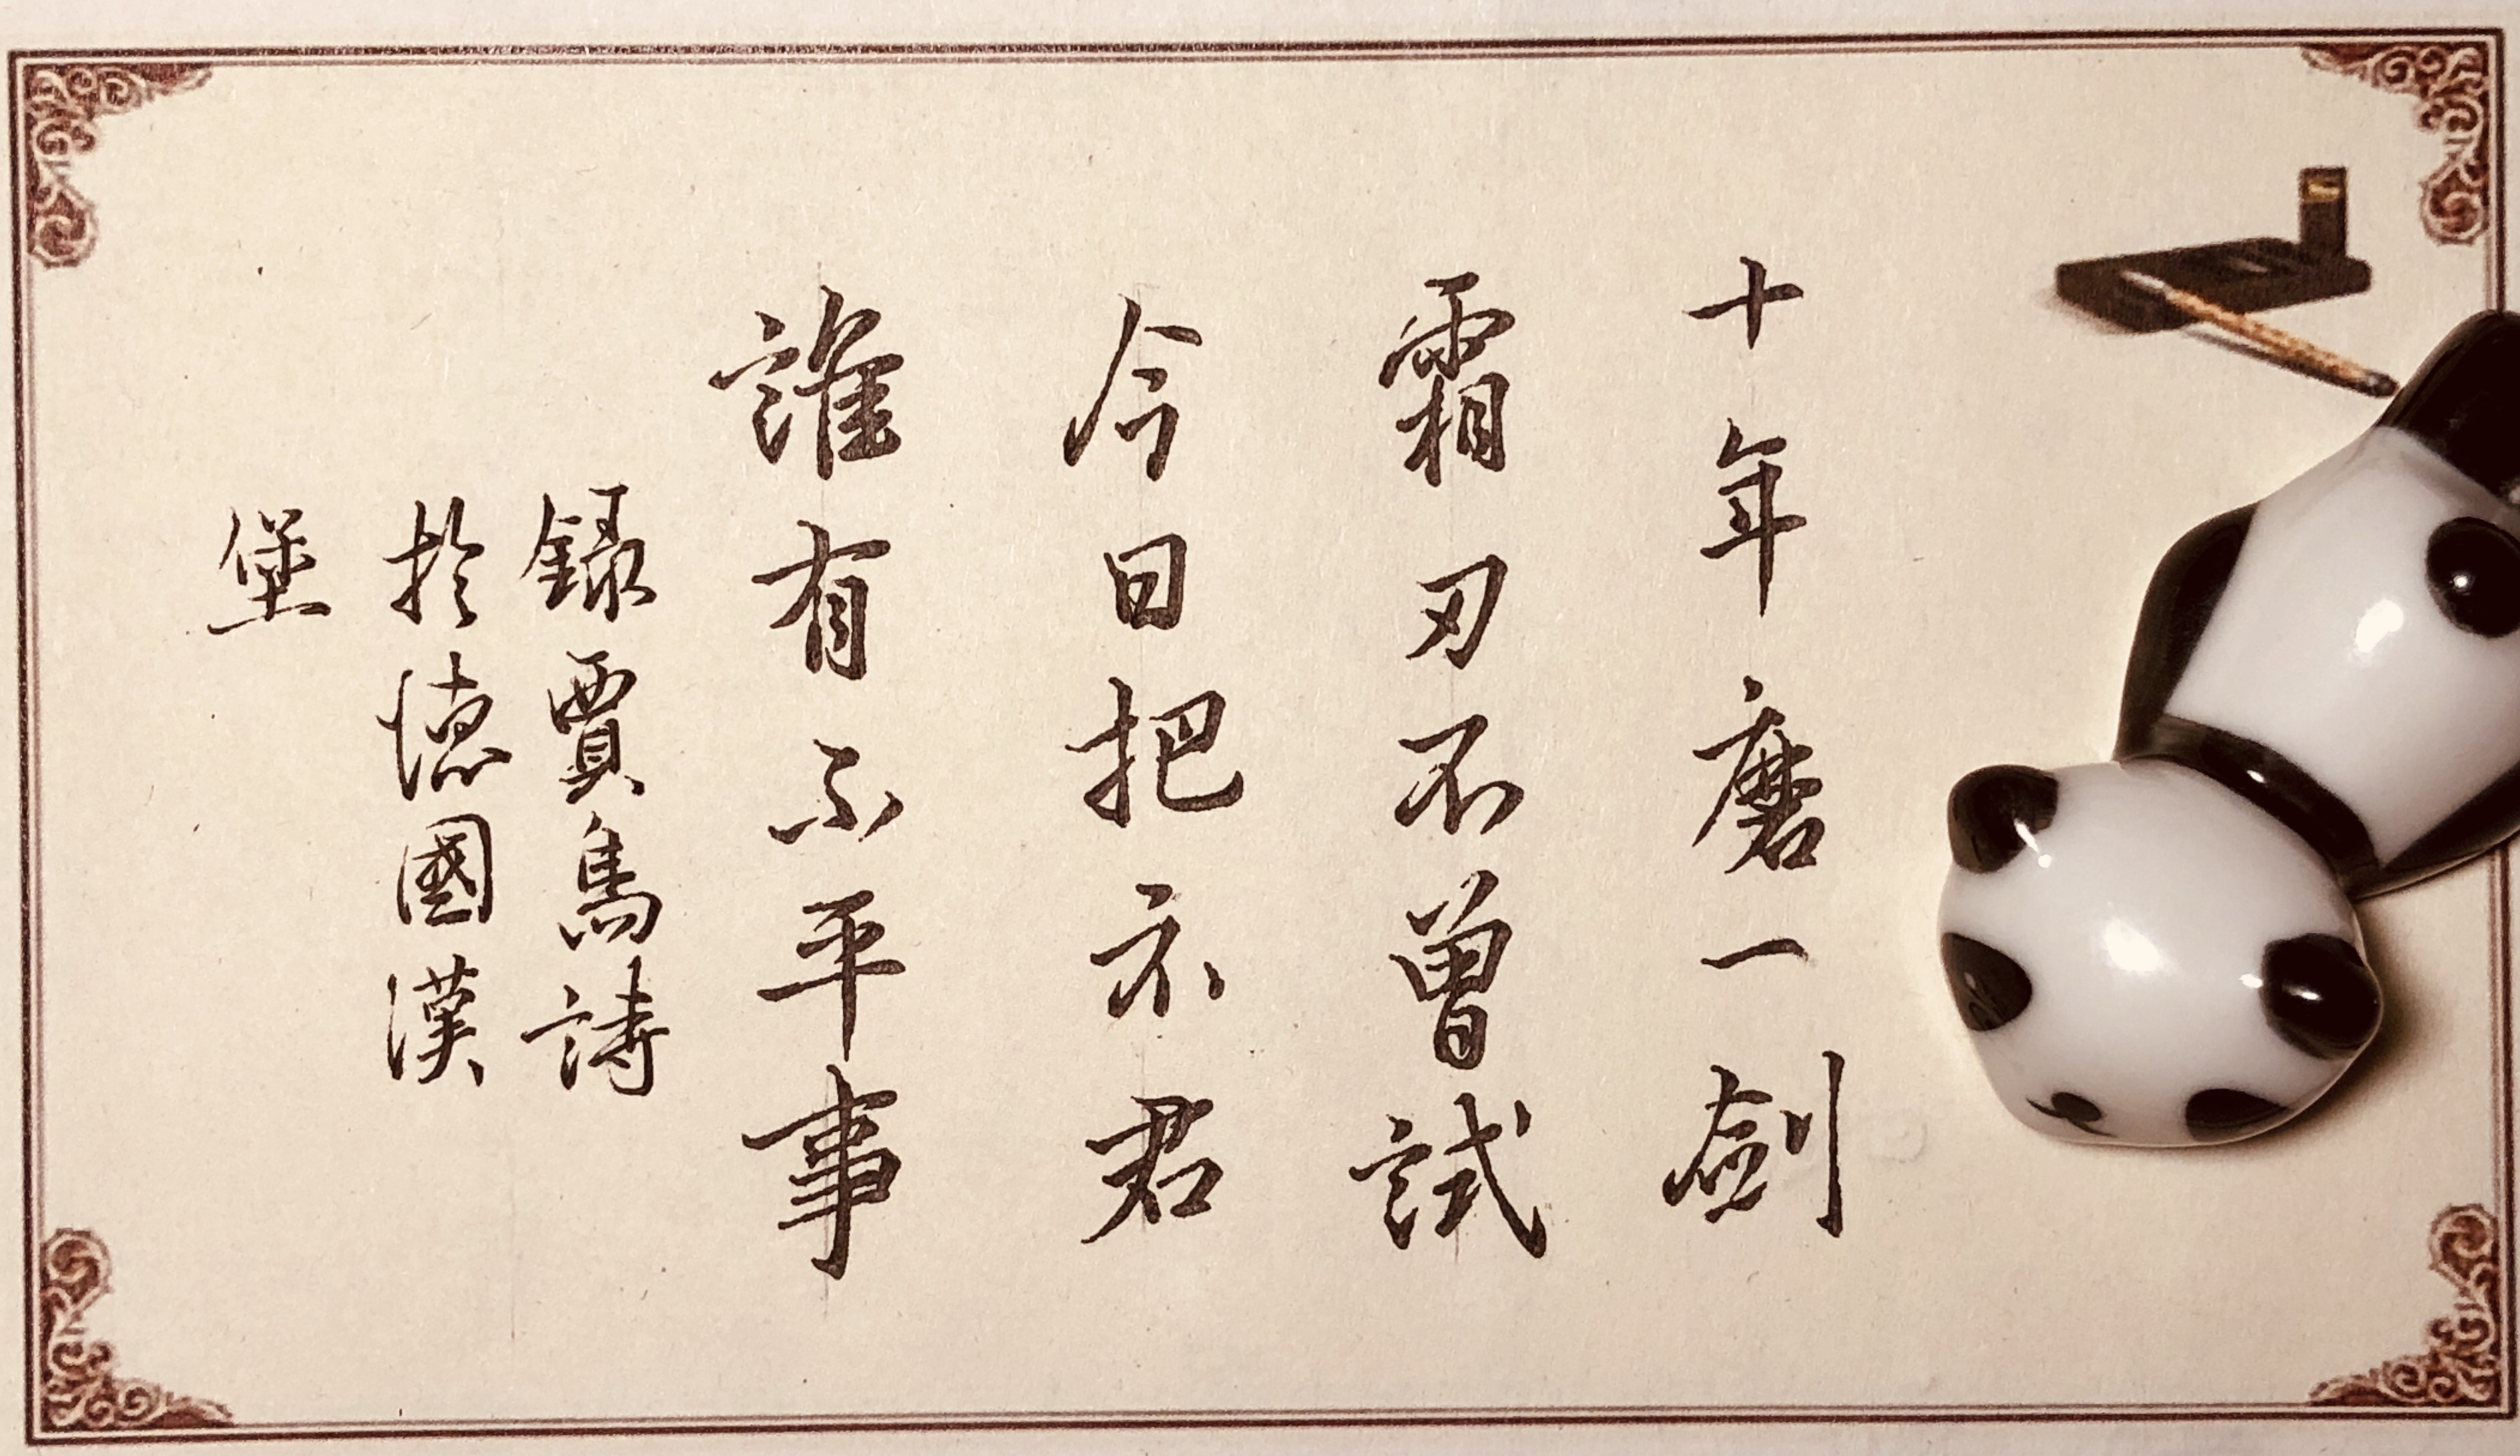 十年磨一劍
霜刃不曾試
今日把示君
誰有不平事
錄賈島詩
於德國漢
堡